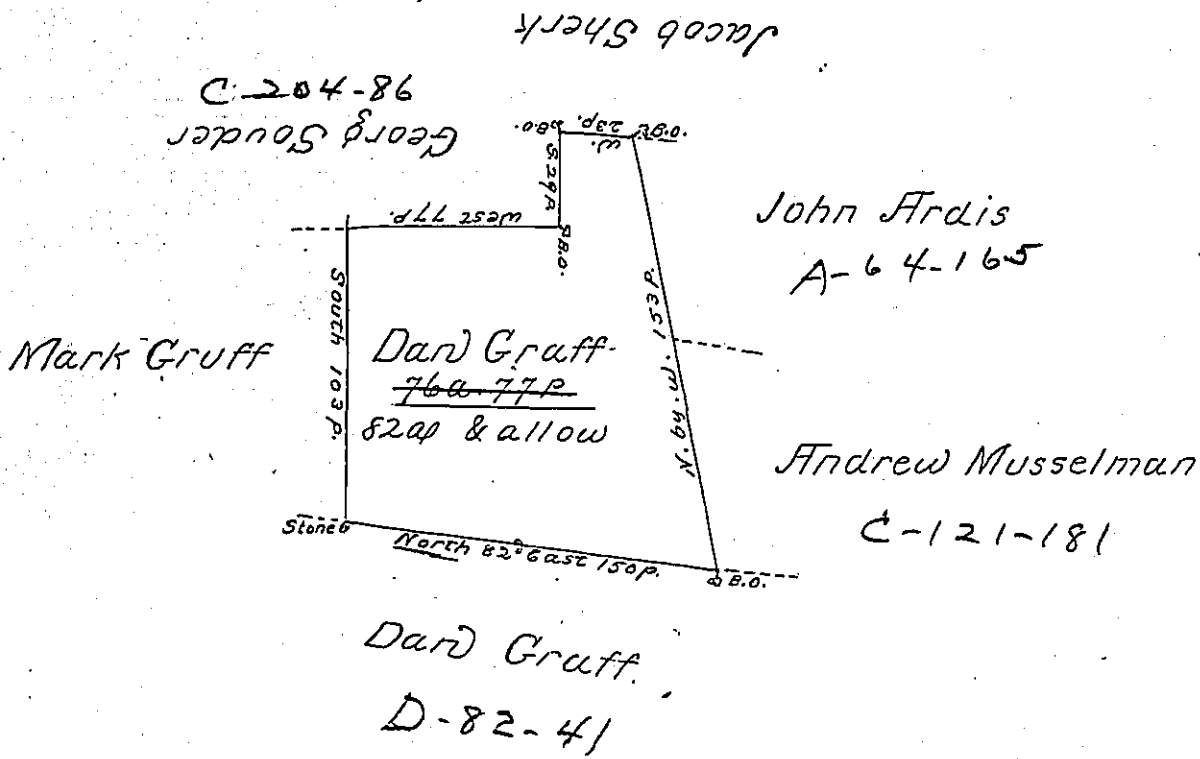 Jacob Sherk
C-204-86
Georg Souder
B.O.
W. 23p.
O.BR.
S 29p
West 77p.
B.O.
John Ardis
A-64-165
South 103p.
153p.
Mark Gruff
Dan Graff
76a-77p
82ap & allow
Andrew Musselman
C-121-181
Stone
North 82° East 150p.
B.O.
Dan Graff.
D-82-41